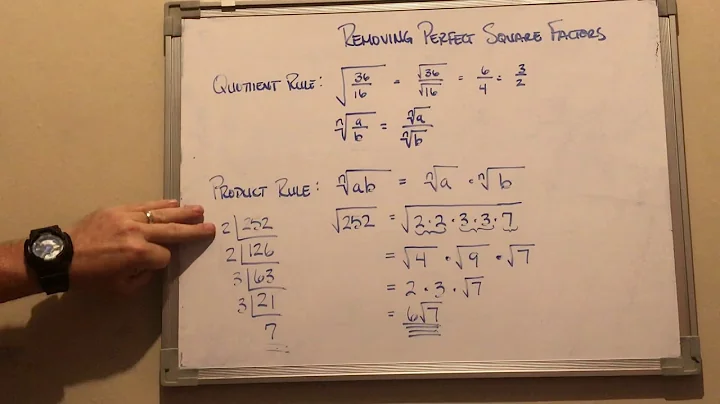 REMOVING PERFECT SQUARE FACTORS
QUOTIENT RULE: √(36/16) = √36/√16 = 6/4 = 3/2
ⁿ√(a/b) = ⁿ√a/ⁿ√b
PRODUCT RULE: ⁿ√ab = ⁿ√a · ⁿ√b
√252 = √(2·2·3·3·7)
= √4 · √9 · √7
= 2 · 3 · √7
= 6√7
2 |252
2 |126
3 |63
3 |21
7